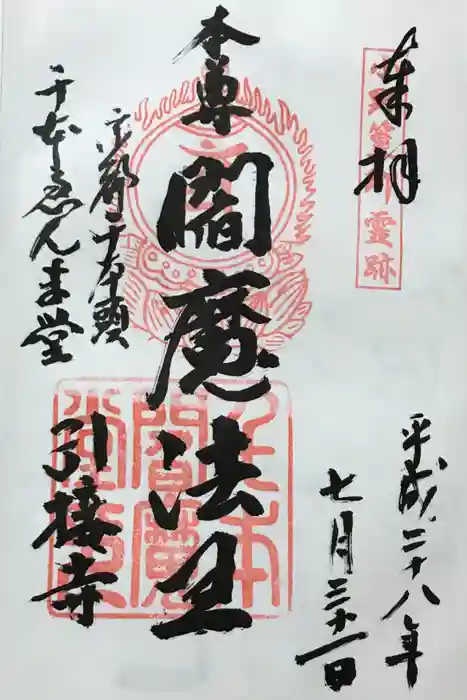 奉拝
靈跡
平成二十八年
七月三十一日
本尊
閻魔法王
京都千本頭
千本ゑんま堂
引接寺